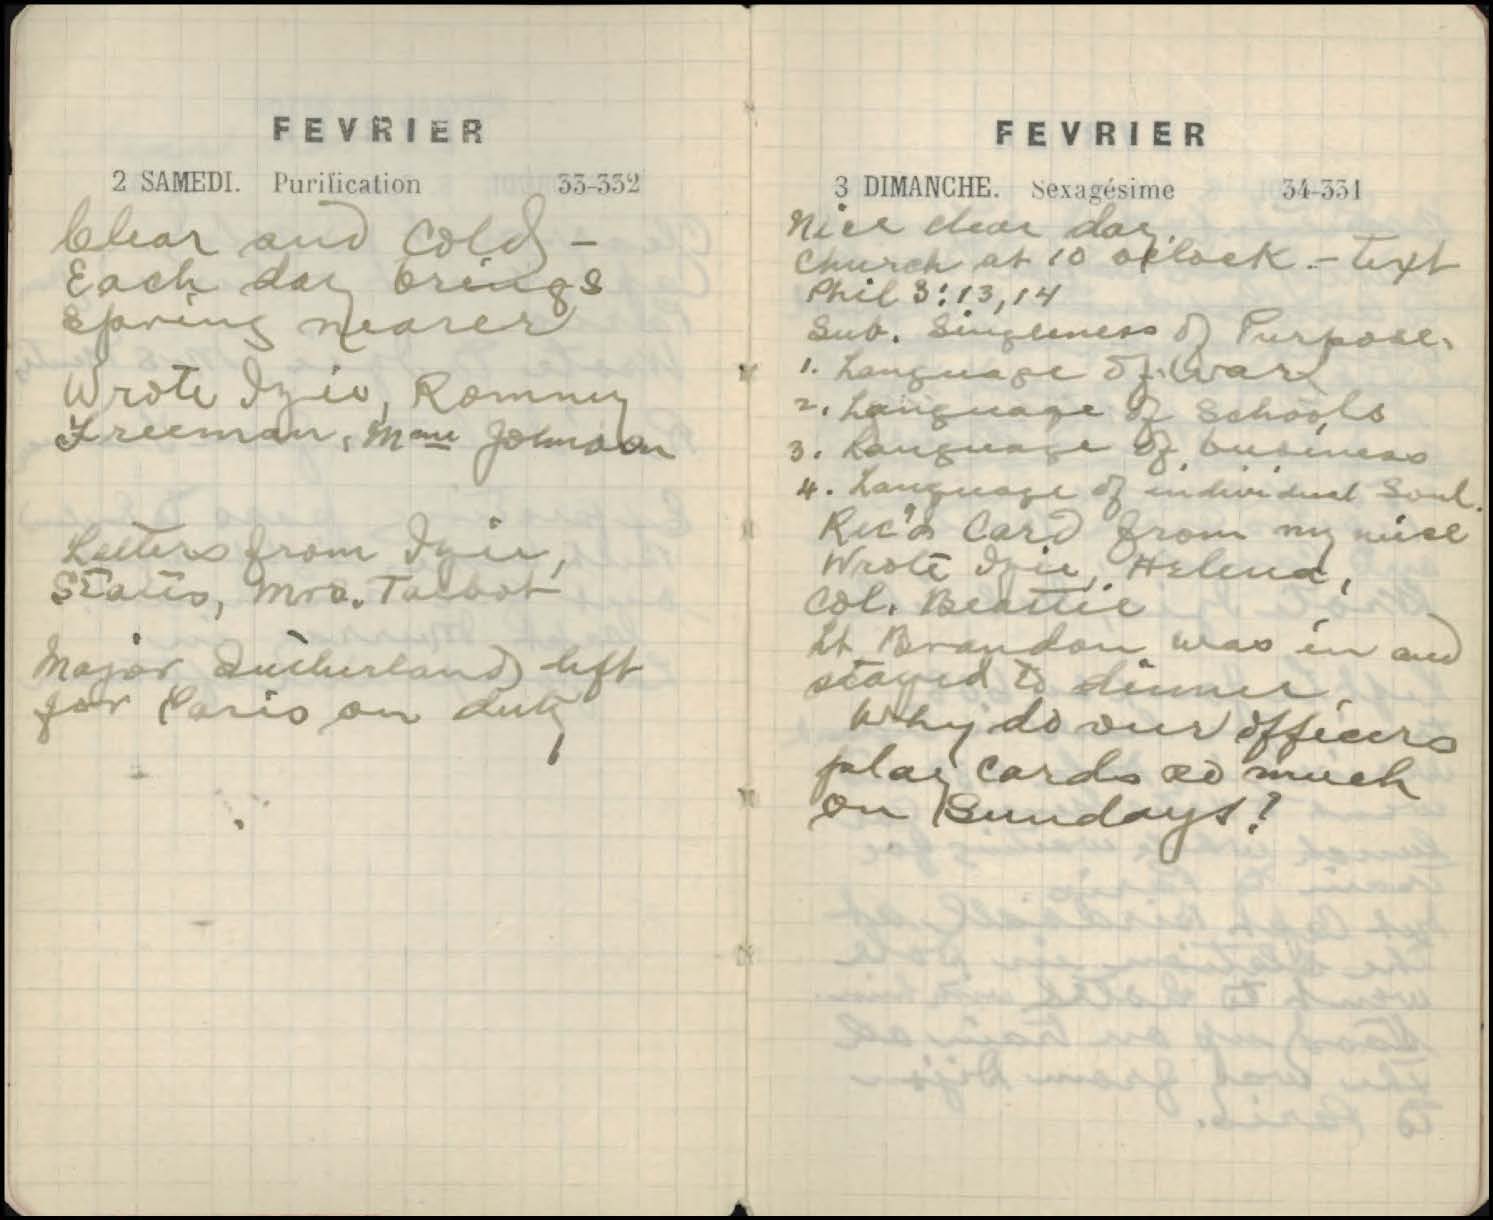 FEVRIER
2 SAMEDI. Purification 33-332
Clear and Cold -
Each day brings
Spring nearer
Wrote Izie, Romney
Freeman, Mme Johnson
Letters from Izie,
States, Mrs. Talbot
Major Sutherland left
for Paris on duty
FEVRIER
3 DIMANCHE. Sexagésime 34-331
Nice clear day.
Church at 10 o'clock. - Text
Phil 3:13,14
Sub. Singleness of Purpose.
1. Language of War
2. Language of Schools
3. Language of business
4. Language of individual Soul.
Rec'd Card from my niece
Wrote Izie, Helena,
Col. Beattie
Lt Brandon was in and
stayed to dinner.
Why do our officers
play cards so much
on Sundays?